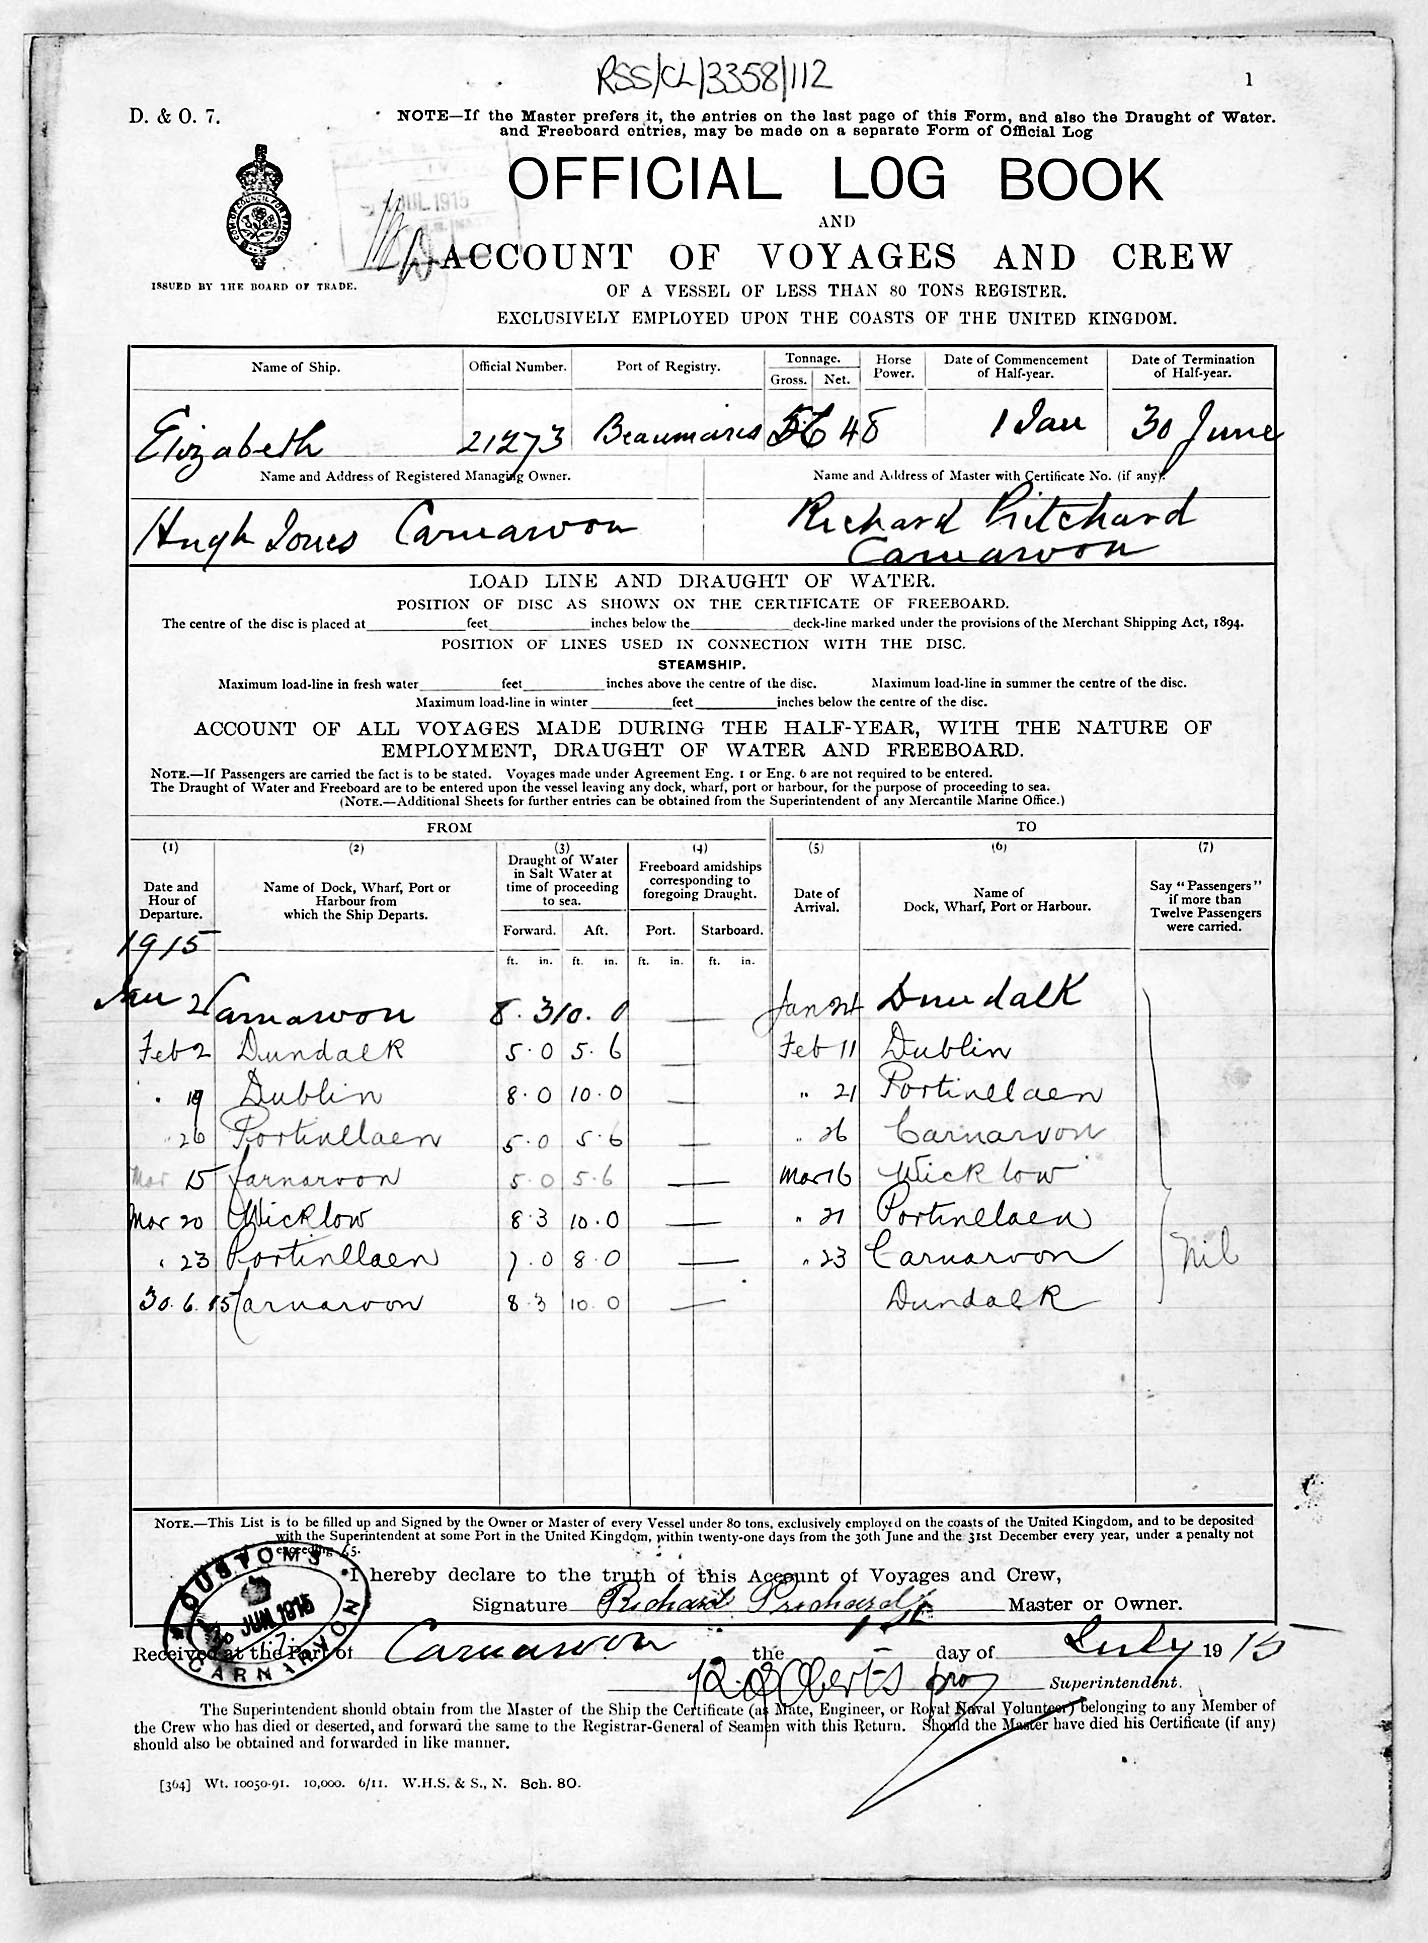 RSS/CL/3358/112
1
D. & O. 7.
NOTE—If the Master prefers it, the entries on the last page of this Form, and also the Draught of Water.
and Freeboard entries, may be made on a separate Form of Official Log
JUL 1915
OFFICIAL LOG BOOK
AND
ACCOUNT OF VOYAGES AND CREW
ISSUED BY THE BOARD OF TRADE.
OF A VESSEL OF LESS THAN 80 TONS REGISTER.
EXCLUSIVELY EMPLOYED UPON THE COASTS OF THE UNITED KINGDOM.
Name of Ship. Official Number. Port of Registry. Tonnage. Gross. Net. Horse Power. Date of Commencement of Half-year. Date of Termination of Half-year.
Elizabeth 21273 Beaumaris 48 1 Jan 30 June
Name and Address of Registered Managing Owner. Name and Address of Master with Certificate No. (if any).
Hugh Jones Carnarvon Richard Pritchard
Carnarvon
LOAD LINE AND DRAUGHT OF WATER.
POSITION OF DISC AS SHOWN ON THE CERTIFICATE OF FREEBOARD.
The centre of the disc is placed at feet inches below the deck-line marked under the provisions of the Merchant Shipping Act, 1894.
POSITION OF LINES USED IN CONNECTION WITH THE DISC.
STEAMSHIP.
Maximum load-line in fresh water feet inches above the centre of the disc. Maximum load-line in summer the centre of the disc.
Maximum load-line in winter feet inches below the centre of the disc.
ACCOUNT OF ALL VOYAGES MADE DURING THE HALF-YEAR, WITH THE NATURE OF
EMPLOYMENT, DRAUGHT OF WATER AND FREEBOARD.
NOTE.—If Passengers are carried the fact is to be stated. Voyages made under Agreement Eng. 1 or Eng. 6 are not required to be entered.
The Draught of Water and Freeboard are to be entered upon the vessel leaving any dock, wharf, port or harbour, for the purpose of proceeding to sea.
(NOTE.—Additional Sheets for further entries can be obtained from the Superintendent of any Mercantile Marine Office.)
FROM TO
(1) (2) (3) (4) (5) (6) (7)
Date and Hour of Departure. Name of Dock, Wharf, Port or Harbour from which the Ship Departs. Draught of Water in Salt Water at time of proceeding to sea. Freeboard amidships corresponding to foregoing Draught. Date of Arrival. Name of Dock, Wharf, Port or Harbour. Say "Passengers" if more than Twelve Passengers were carried.
Forward. Aft. Port. Starboard.
1915
ft. in. ft. in. ft. in. ft. in.
Jan 2 Carnarvon 8.3 10.0 — Jan 24 Dundalk
Feb 2 Dundalk 5.0 5.6 — Feb 11 Dublin
" 19 Dublin 8.0 10.0 — " 21 Portinllaen
" 26 Portinllaen 5.0 5.6 — " 26 Carnarvon
Mar 15 Carnarvon 5.0 5.6 — Mar 16 Wicklow
Mar 20 Wicklow 8.3 10.0 — " 21 Portinllaen
" 23 Portinllaen 7.0 8.0 — " 23 Carnarvon Nil
30.6.15 Carnarvon 8.3 10.0 — Dundalk
NOTE.—This List is to be filled up and Signed by the Owner or Master of every Vessel under 80 tons, exclusively employed on the coasts of the United Kingdom, and to be deposited
with the Superintendent at some Port in the United Kingdom, within twenty-one days from the 30th June and the 31st December every year, under a penalty not
exceeding £5.
CUSTOMS
JUN 1915
CARNARVON
I hereby declare to the truth of this Account of Voyages and Crew,
Signature Richard Prichard Master or Owner.
Received at the Port of Carnarvon the day of July 1915
R. J. Roberts pro Superintendent.
The Superintendent should obtain from the Master of the Ship the Certificate (as Mate, Engineer, or Royal Naval Volunteer) belonging to any Member of
the Crew who has died or deserted, and forward the same to the Registrar-General of Seamen with this Return. Should the Master have died his Certificate (if any)
should also be obtained and forwarded in like manner.
[364] Wt. 10050-91. 10,000. 6/11. W.H.S. & S., N. Sch. 80.